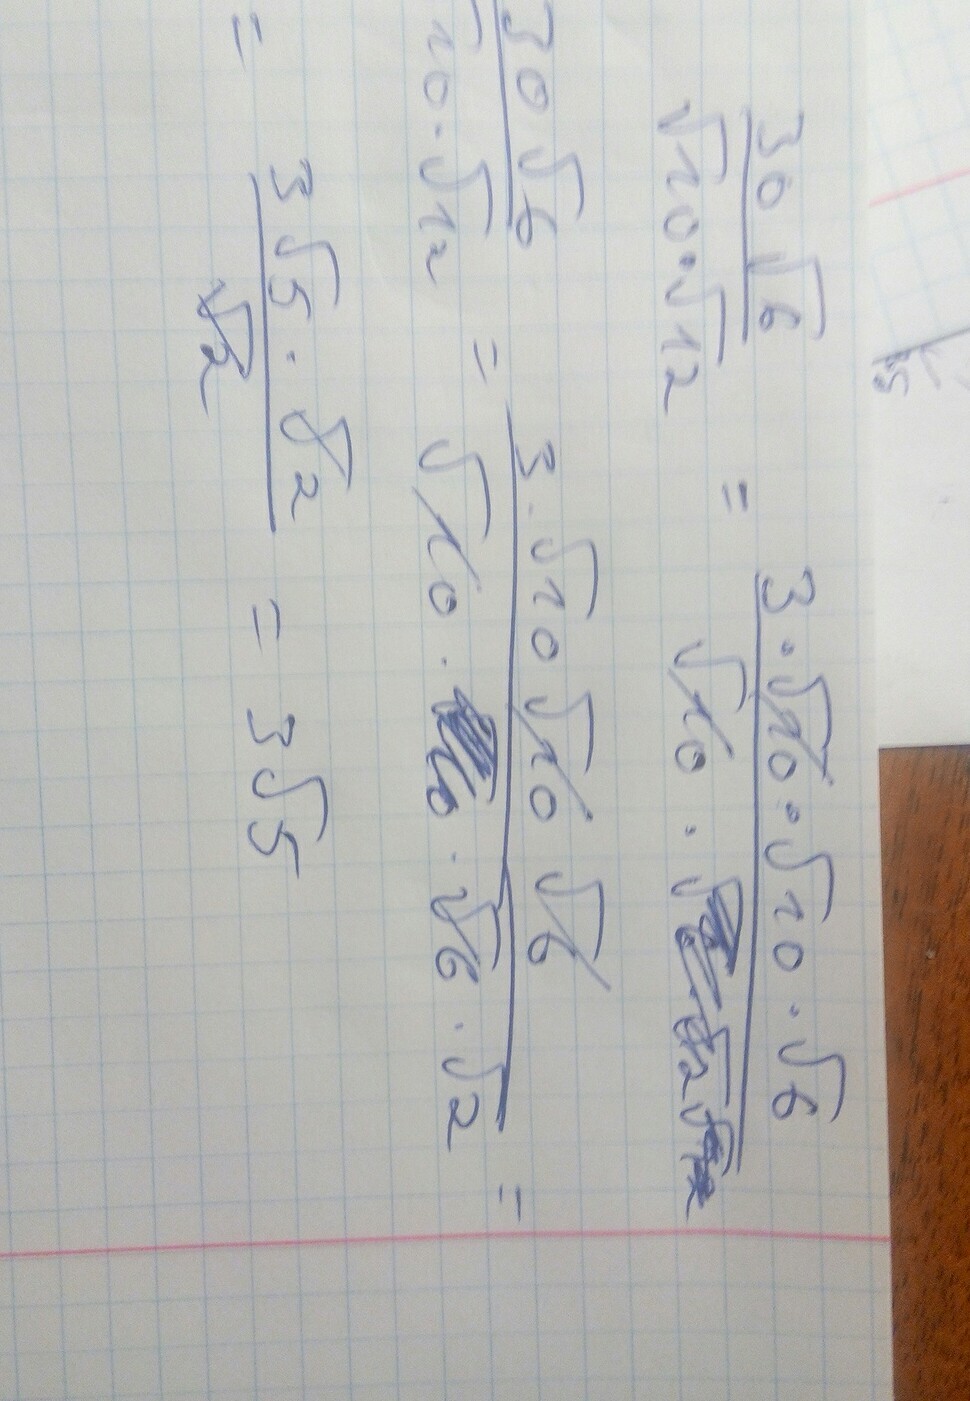 30√6 / √10·√12 = 3·√10·√10·√6 / √10·√2
30√6 / √10·√12 = 3·√10√10√6 / √10·√6·√2 =
= 3√5·√2 / √2 = 3√5